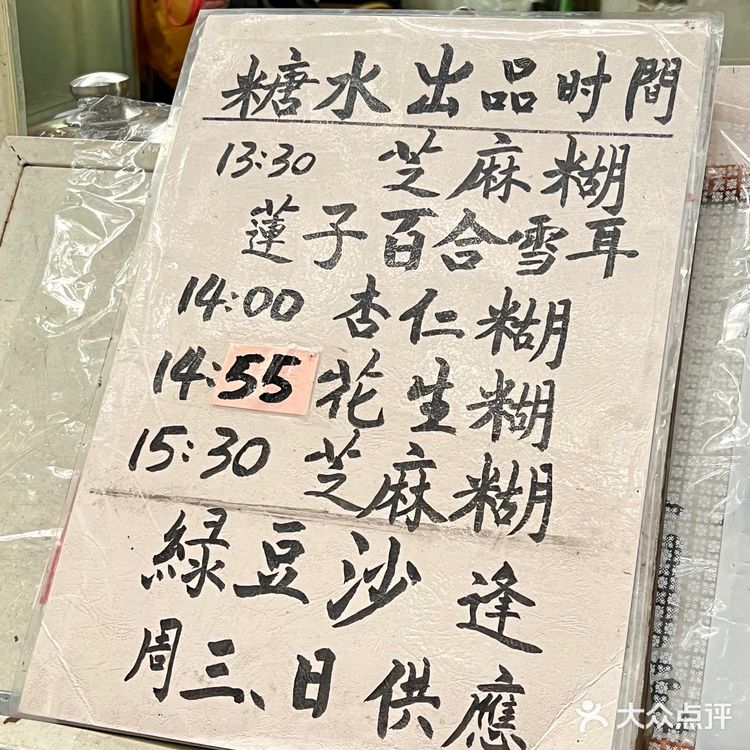 糖水出品时間
13:30 芝麻糊
蓮子百合雪耳
14:00 杏仁糊
14:55 花生糊
15:30 芝麻糊
綠豆沙 逢
周三、日供應
大众点评